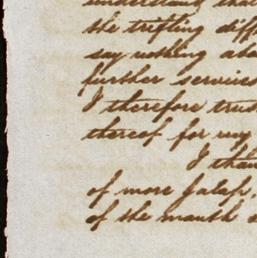 understand that
the trifling diff
say nothing abo
further services
I therefore trus
thereof for my
I than
of more Jalap,
of the month